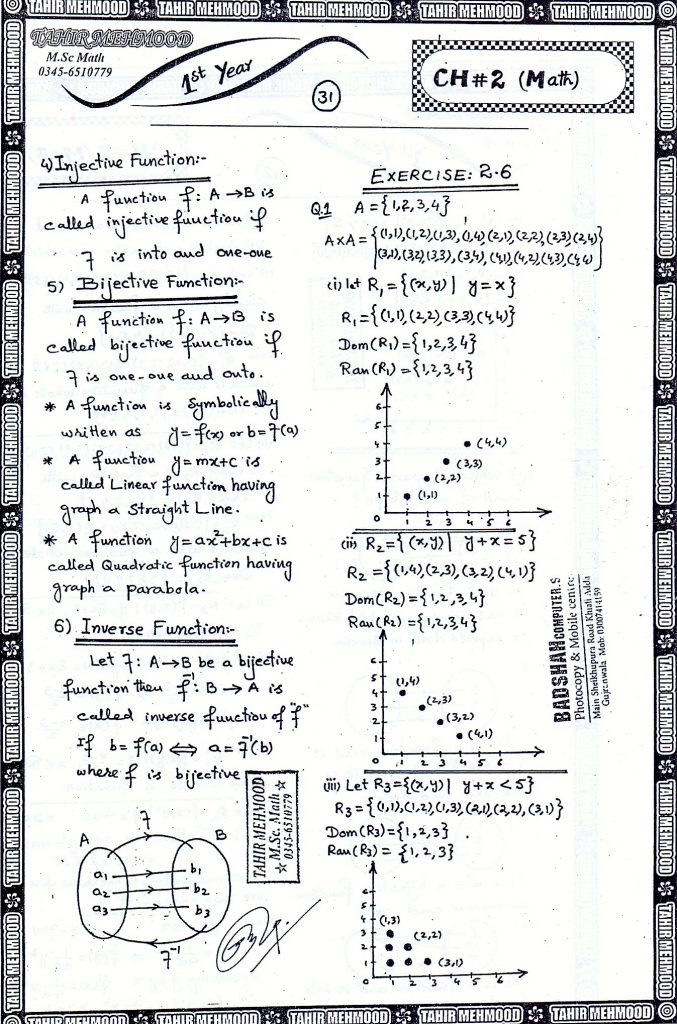 TAHIR MEHMOOD TAHIR MEHMOOD TAHIR MEHMOOD TAHIR MEHMOOD TAHIR MEHMOOD
TAHIR MEHMOOD
M.Sc Math
0345-6510779
1st Year
31
CH#2 (Math)
4) Injective Function:-
A function f: A→B is
called injective function if
f is into and one-one
5) Bijective Function:-
A function f: A→B is
called bijective function if
f is one-one and onto.
* A function is Symbolically
written as y=f(x) or b=f(a)
* A function y=mx+c is
called Linear function having
graph a Straight Line.
* A function y=ax²+bx+c is
called Quadratic function having
graph a parabola.
6) Inverse Function:-
Let f: A→B be a bijective
function then f⁻¹: B→A is
called inverse function of "f"
If b=f(a) ⟺ a=f⁻¹(b)
where f is bijective
f
A B
a1 b1
a2 b2
a3 b3
f⁻¹
TAHIR MEHMOOD
☆ M.Sc. Math ☆
☆ 0345-6510779
EXERCISE: 2.6
Q.1 A={1,2,3,4}
A×A={(1,1),(1,2),(1,3),(1,4),(2,1),(2,2),(2,3),(2,4)
(3,1),(3,2)(3,3),(3,4),(4,1)(4,2)(4,3)(4,4)}
(i) let R1={(x,y)| y=x}
R1={(1,1),(2,2),(3,3),(4,4)}
Dom(R1)={1,2,3,4}
Ran(R1)={1,2,3,4}
6
5
4 (4,4)
3 (3,3)
2 (2,2)
1 (1,1)
0 1 2 3 4 5 6
(ii) R2={(x,y)| y+x=5}
R2={(1,4),(2,3),(3,2),(4,1)}
Dom(R2)={1,2,3,4}
Ran(R2)={1,2,3,4}
6
5
4 (1,4)
3 (2,3)
2 (3,2)
1 (4,1)
0 1 2 3 4 5 6
(iii) Let R3={(x,y)| y+x<5}
R3={(1,1),(1,2),(1,3),(2,1),(2,2),(3,1)}
Dom(R3)={1,2,3}
Ran(R3)={1,2,3}
6
5
4 (1,3)
3 (2,2)
2
1 (3,1)
0 1 2 3 4 5 6
BADSHAH COMPUTER.S
Photocopy & Mobile center
Main Sheikhupura Road Khiali Adda
Gujranwala Mob: 03007414159
TAHIR MEHMOOD TAHIR MEHMOOD TAHIR MEHMOOD TAHIR MEHMOOD TAHIR MEHMOOD